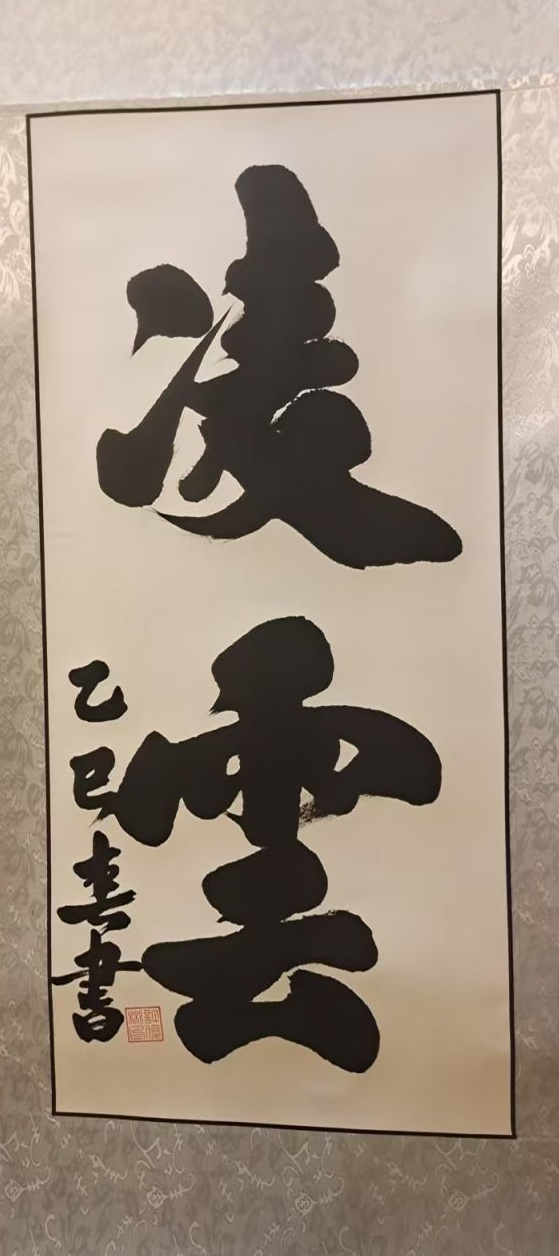 凌雲
乙巳春書